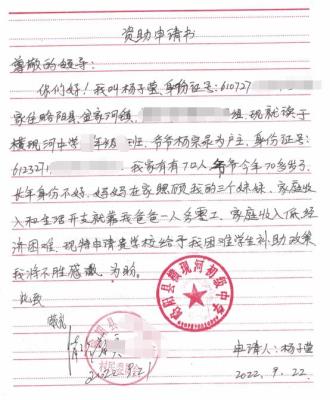 资助申请书
尊敬的领导:
你们好!我叫杨子萱,身份证号:610727
家住略阳县金家河镇, 组,现就读于
横现河中学 年级 班,爷爷杨 为户主,身份证号:
612327, 我家有有7口人 爷爷今年70多岁了
长年身份不好,妈妈在家照顾我的三个妹妹,家庭收
入和生活开支就靠我爸爸一人务零工,家庭收入低,经
济困难,现特申请贵学校给予我困难学生补助政策
我将不胜感激 为盼。
此致
敬礼
情况属实
略阳县横现河初级中学
村民委员会
2022.9.21
申请人:杨子萱
2022.9.22